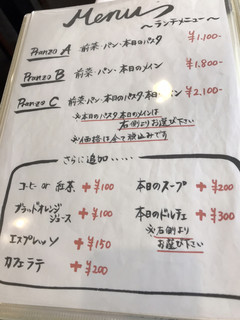 Menu
～ランチメニュー～
Pranzo A 前菜・パン・本日のパスタ ¥1,100-
Pranzo B 前菜・パン・本日のメイン ¥1,800-
Pranzo C 前菜・パン・本日のパスタ・本日のメイン ¥2,100-
※本日のパスタ、本日のメインは
右側よりお選び下さい
※価格は全て税込みです
さらに追加・・・・・
コーヒー or 紅茶 + ¥100
ブラッドオレンジ
ジュース + ¥100
エスプレッソ + ¥150
カフェラテ + ¥200
本日のスープ + ¥200
本日のドルチェ + ¥300
※右側より
お選び下さい